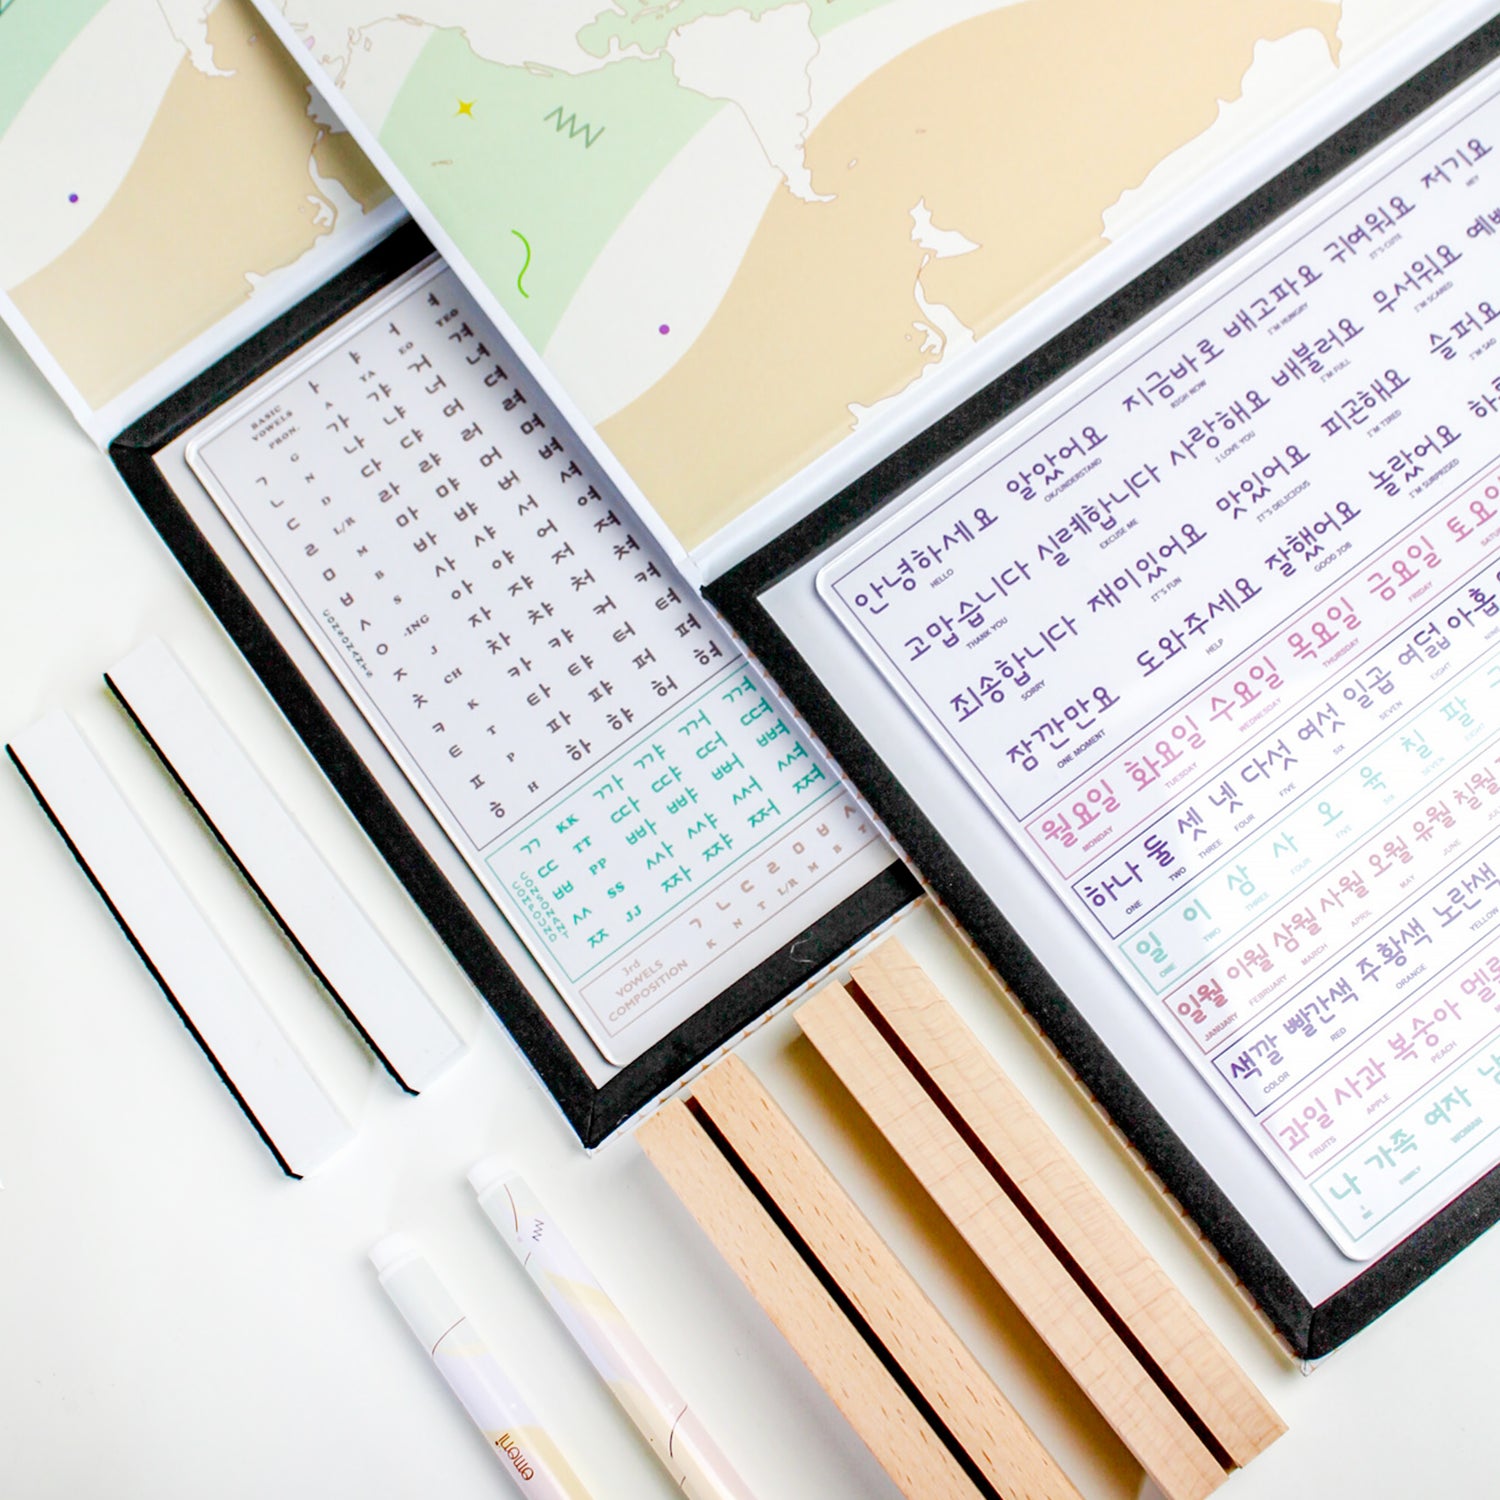 BASIC VOWELS PRON. ㅏ ㅑ ㅓ ㅕ
A YA EO YEO
ㄱ G 가 갸 거 겨
ㄴ N 나 냐 너 녀
ㄷ D 다 댜 더 뎌
ㄹ L/R 라 랴 러 려
ㅁ M 마 먀 머 며
ㅂ B 바 뱌 버 벼
ㅅ S 사 샤 서 셔
ㅇ -ING 아 야 어 여
ㅈ J 자 쟈 저 져
ㅊ CH 차 챠 처 쳐
ㅋ K 카 캬 커 켜
ㅌ T 타 탸 터 텨
ㅍ P 파 퍄 퍼 펴
ㅎ H 하 햐 허 혀
CONSONANTS
ㄲ KK 까 꺄 꺼 껴
ㄸ TT 따 땨 떠 뗘
ㅃ PP 빠 뺘 뻐 뼈
ㅆ SS 싸 쌰 써 쎠
ㅉ JJ 짜 쨔 쩌 쪄
COMPOUND CONSONANTS
3rd VOWELS COMPOSITION
ㄱ ㄴ ㄷ ㄹ ㅁ ㅂ ㅅ
K N T L/R M B T
안녕하세요 알았어요 지금바로 배고파요 귀여워요 저기요
HELLO OK/UNDERSTAND RIGHT NOW I'M HUNGRY IT'S CUTE HEY
고맙습니다 실례합니다 사랑해요 배불러요 무서워요
THANK YOU EXCUSE ME I LOVE YOU I'M FULL I'M SCARED
죄송합니다 재미있어요 맛있어요 피곤해요 슬퍼요
SORRY IT'S FUN IT'S DELICIOUS I'M TIRED I'M SAD
잠깐만요 도와주세요 잘했어요 놀랐어요
ONE MOMENT HELP GOOD JOB I'M SURPRISED
월요일 화요일 수요일 목요일 금요일 토요일
MONDAY TUESDAY WEDNESDAY THURSDAY FRIDAY
하나 둘 셋 넷 다섯 여섯 일곱 여덟 아홉
ONE TWO THREE FOUR FIVE SIX SEVEN EIGHT NINE
일 이 삼 사 오 육 칠 팔
ONE TWO THREE FOUR FIVE SIX SEVEN EIGHT
일월 이월 삼월 사월 오월 유월 칠월
JANUARY FEBRUARY MARCH APRIL MAY JUNE
색깔 빨간색 주황색 노란색
COLOR RED ORANGE YELLOW
과일 사과 복숭아
FRUITS APPLE PEACH
나 가족 여자
ME FAMILY WOMAN
omeni